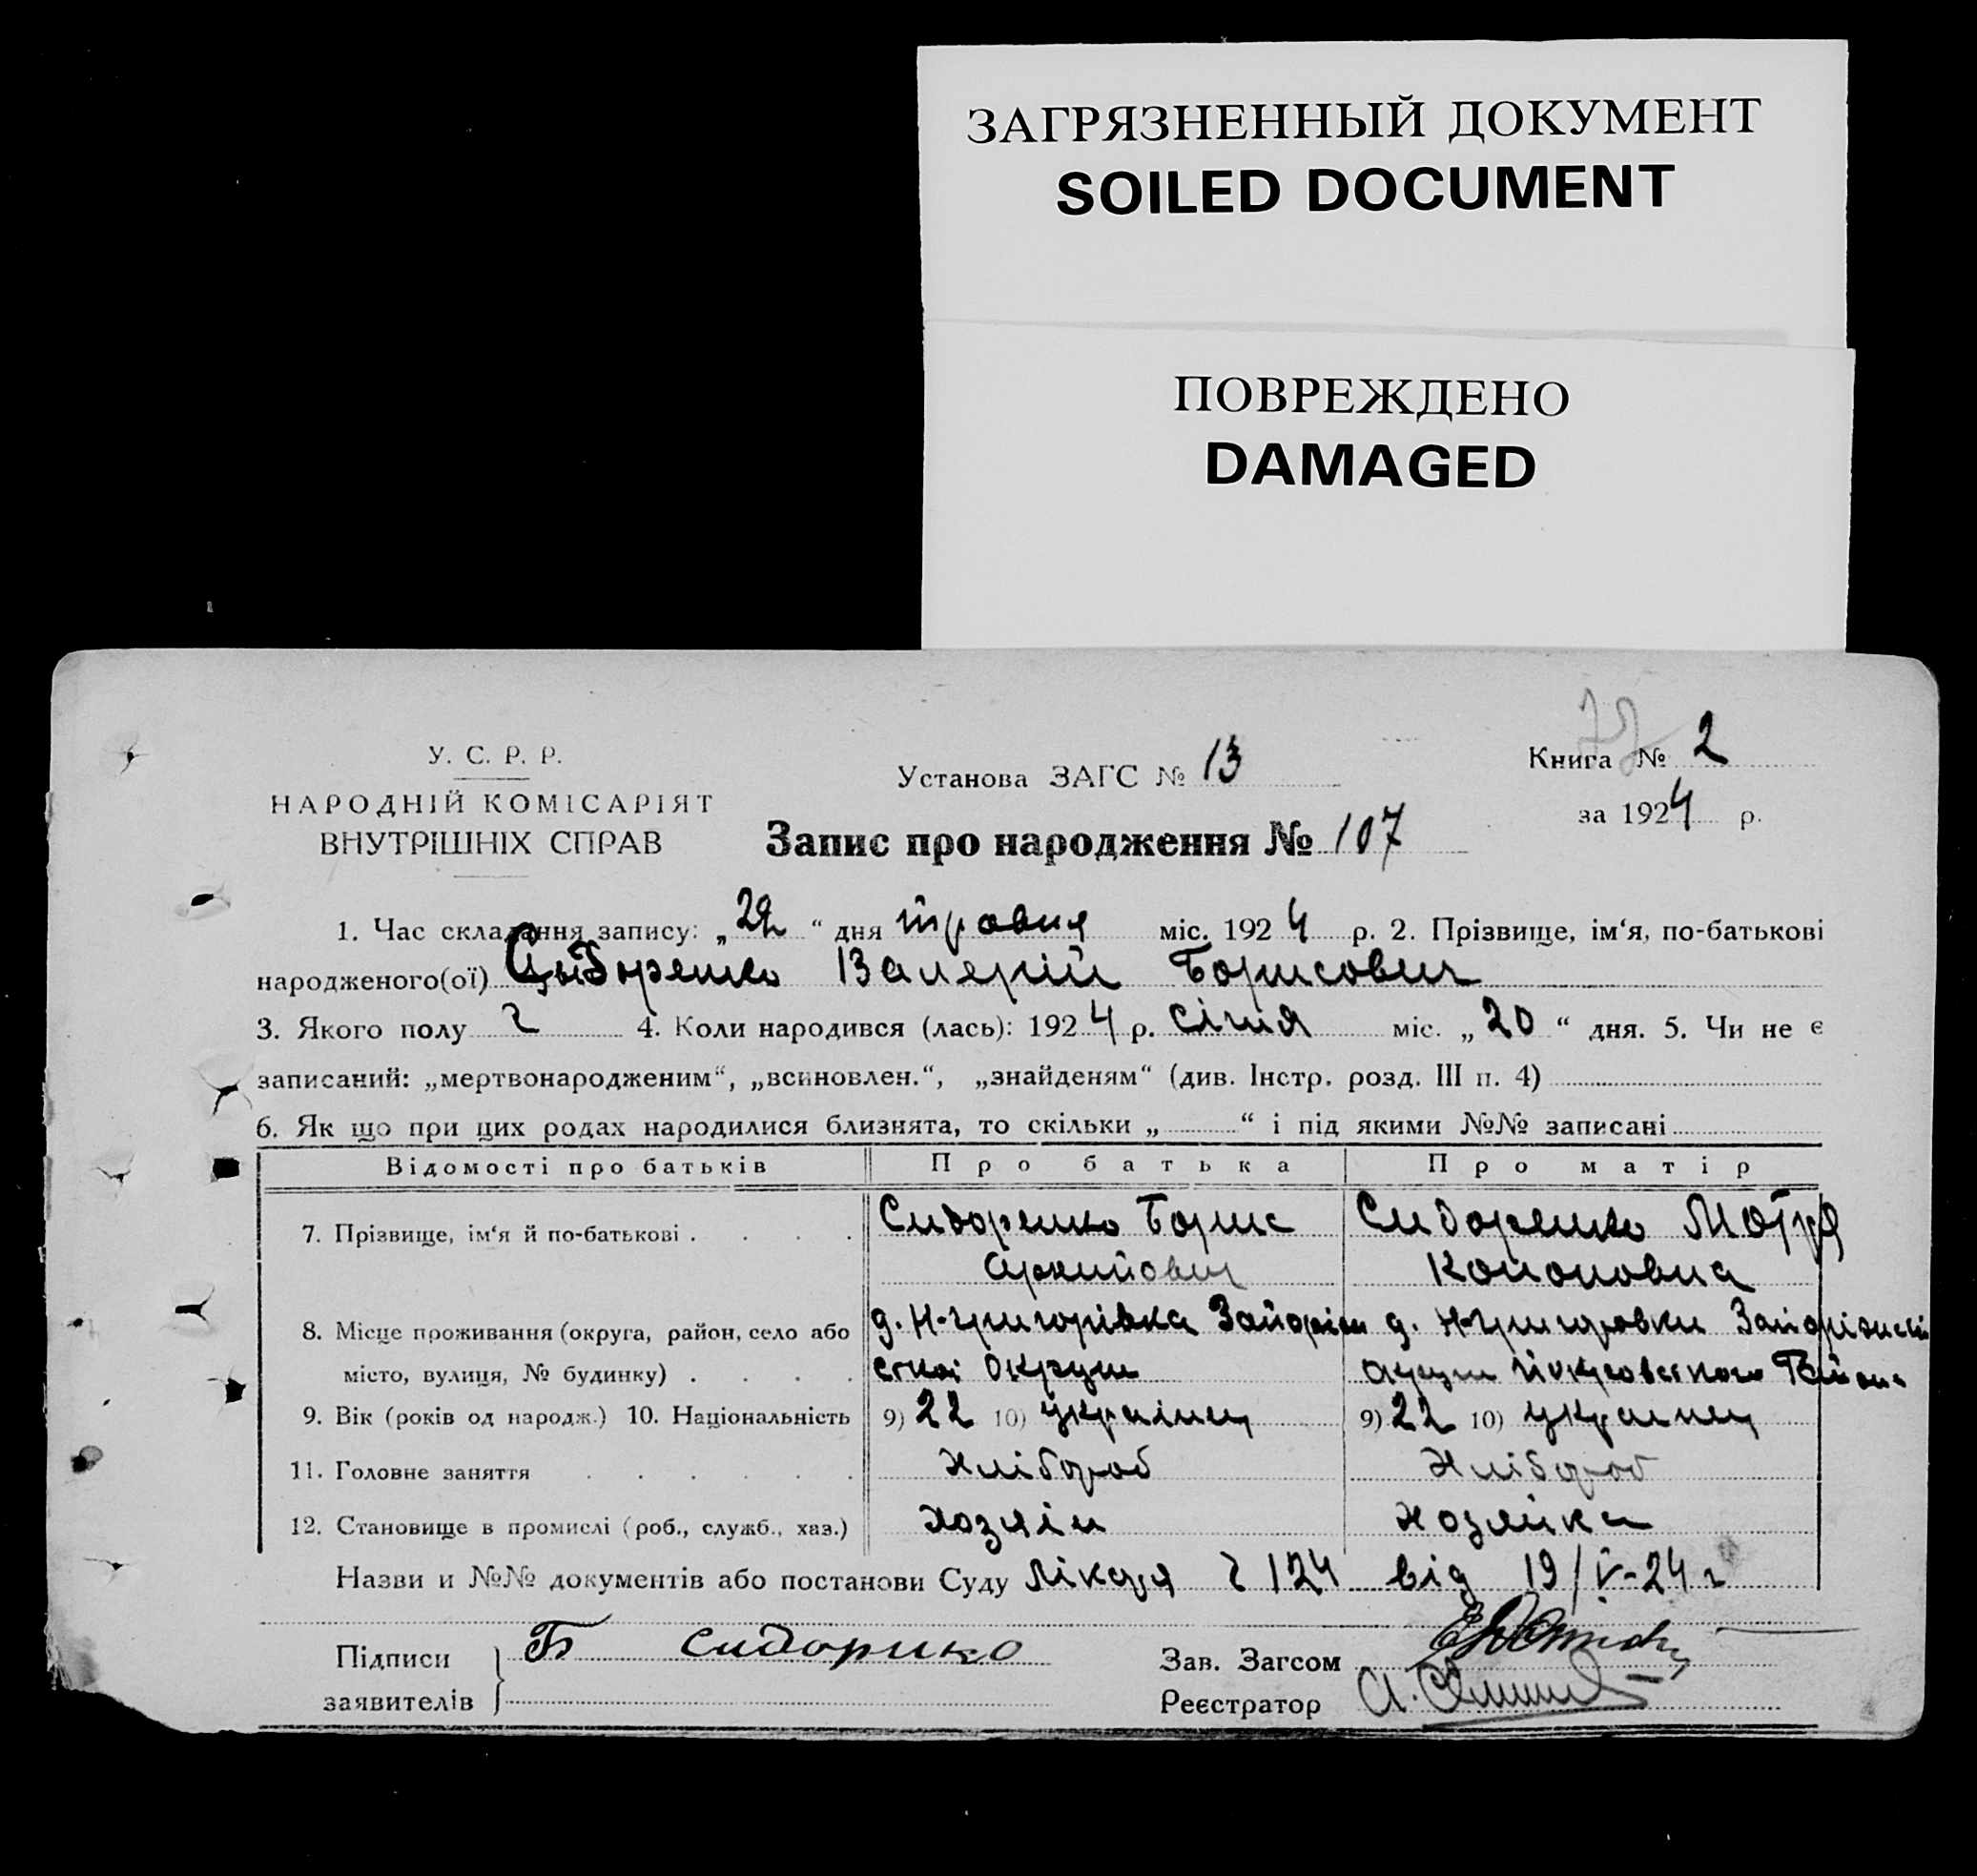 ЗАГРЯЗНЕННЫЙ ДОКУМЕНТ
SOILED DOCUMENT
ПОВРЕЖДЕНО
DAMAGED
У. С. Р. Р.
НАРОДНІЙ КОМІСАРІЯТ
ВНУТРІШНІХ СПРАВ
Установа ЗАГС № 13
Книга № 2
за 1924 р.
Запис про народження № 107
1. Час складання запису: „22“ дня травня міс. 1924 р. 2. Прізвище, ім‘я, по-батькові
народженого(ої) Сидоренко Валерій Борисович
3. Якого полу ч 4. Коли народився (лась): 1924 р. січня міс. „20“ дня. 5. Чи не є
записаний: „мертвонародженим“, „всиновлен.“, „знайденям“ (див. Інстр. розд. III п. 4)
6. Як що при цих родах народилися близнята, то скільки „ “ і під якими №№ записані
Відомості про батьків Про батька Про матір
7. Прізвище, ім‘я й по-батькові . . . . Сидоренко Борис Сидоренко Мотря
Кононовна
8. Місце проживання (округа, район, село або д. Н-григорівка Запоріж д. Н-григоровки
місто, вулиця, № будинку) . . . . ської округи округи Района
9. Вік (років од народж.) 10. Національність 9) 22 10) українец 9) 22 10) украинец
11. Головне заняття . . . . . . Хлібороб Хлібороб
12. Становище в промислі (роб., служб., хаз.) хозяїн хозяйка
Назви и №№ документів або постанови Суду Лікаря ч 124 від 19/V-24 г
Підписи
заявителів
Б Сидорико
Зав. Загсом
Реєстратор